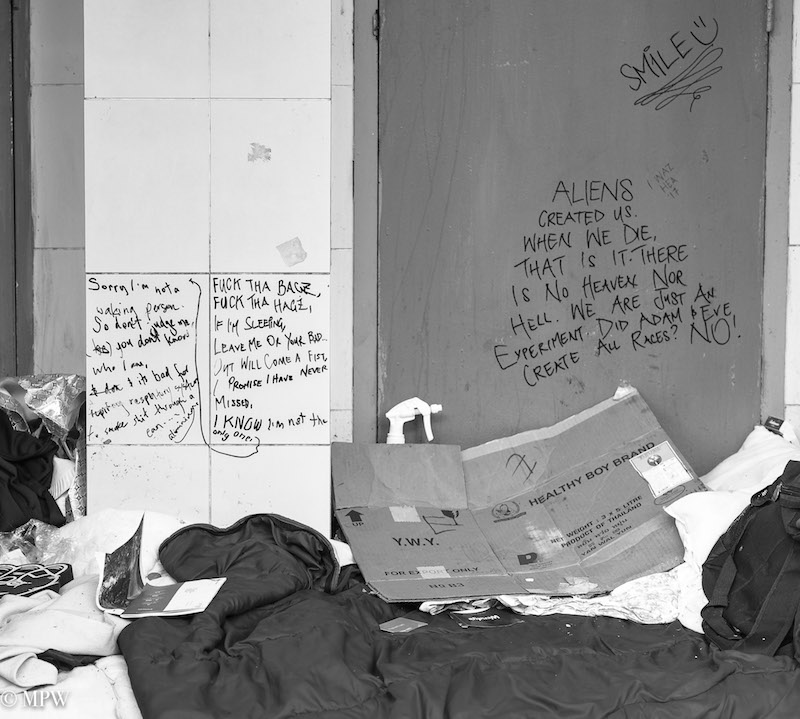 SMILE
ALIENS
CREATED US.
WHEN WE DIE,
THAT IS IT. THERE
IS NO HEAVEN NOR
HELL. WE ARE JUST AN
EXPERIMENT. DID ADAM & EVE
CREATE ALL RACES? NO!
Sorry I'm not a
waking person.
So don't judge me,
you don't know
who I am,
it's bad for
to smoke shit through a
can.
FUCK THA BADGE,
FUCK THA HAGZ,
IF I'M SLEEPING,
LEAVE ME OR YOUR BAD...
WILL COME A FIST,
I PROMISE I HAVE NEVER
MISSED,
I KNOW I'm not the
only one!
UP
Y.W.Y.
FOR EXPORT ONLY
HEALTHY BOY BRAND
NET WEIGHT 3 X 5 LITRE
PRODUCT OF THAILAND
© MPW